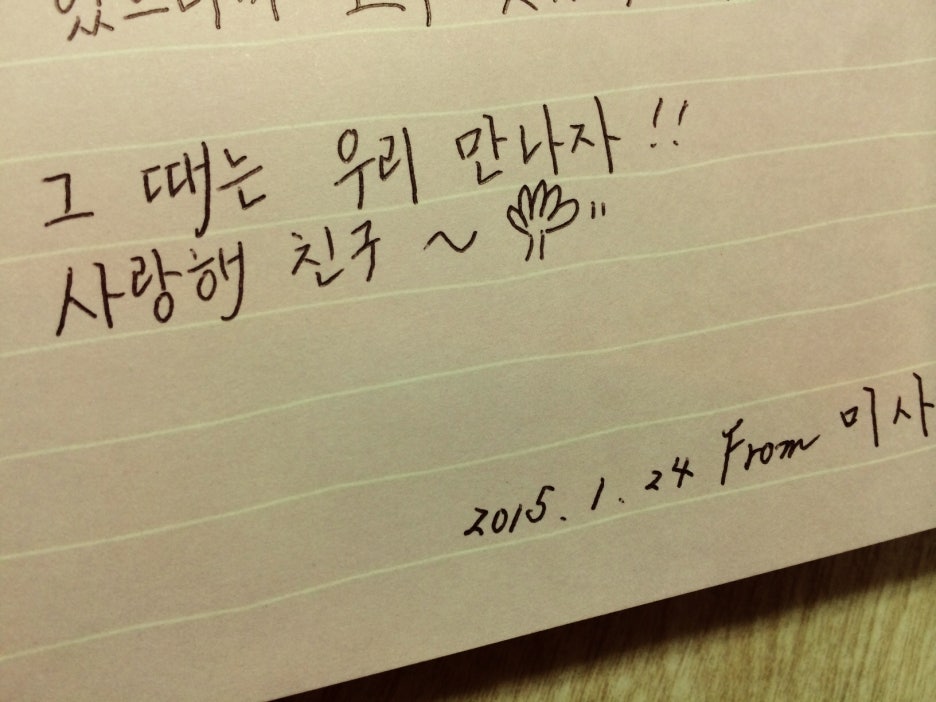 그 때는 우리 만나자!!
사랑해 친구 ~
2015. 1. 24 From 미사